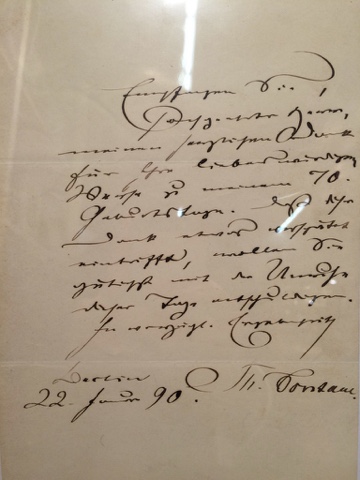 Empfangen Sie,
Hochgeehrter Herr,
meinen herzlichsten Dank
für Ihre liebenswürdigen
Worte zu meinem 70.
Geburtstage. Daß dieser
Dank etwas verspätet
eintrifft, wollen Sie
gütigst mit der Unruhe
dieser Tage entschuldigen.
In vorzügl. Ergebenheit
Berlin Th. Fontane.
22. Janr 90.